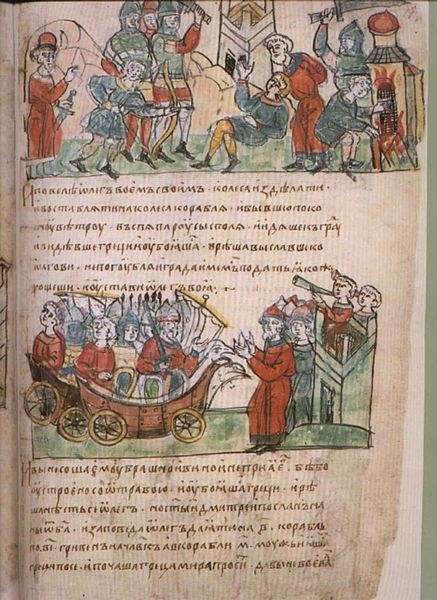 И повелѣ ѡлегъ воемъ своимъ · колеса издѣлати
и воставляти на колеса корабля · и бывшю поко
ноу вѣтроу · въспя пароусы с поля · и идяше къ граⷣ
и видѣвше греци и оубоѧшаⷭ · и рѣша выславше ко
ѡлгови · не погоубляи града имемъ податьⷭ ꙗкоⷤ
хощеши · и оустави ѡлегъ воа ·
И вынесоша емоу брашно и вино и не приа еⷢ · бѣ бо
оустроено со ѡтравою · и оубоꙗшаⷭ греци · и рѣ
ша нѣсть се ѡлегъ · но стыи дмитреи посланъ на
ны ѿ ба · и заповеда ѡлегъ дань даꙗти на · в · корабль
по · вı · гривенъ на чаⷧвкъ а в корабли · м · моужьи ꙗшаⷭ
греци по се · и почаша греци мира проси · дабы не воеваⷧ